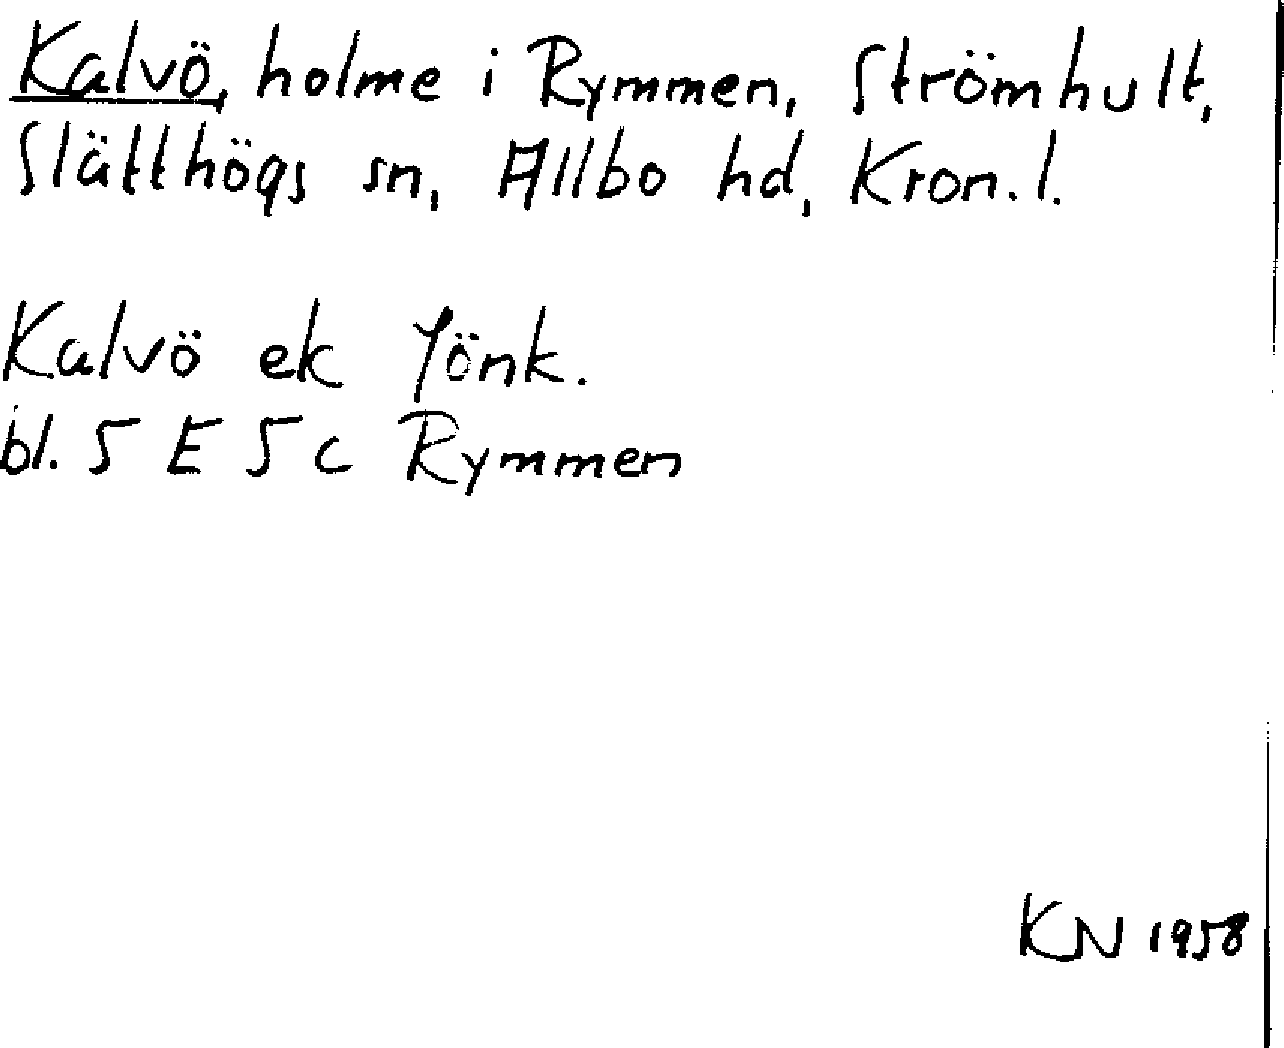 Kalvö, holme i Rymmen, Strömhult,
Slätthögs sn, Allbo hd, Kron. l.
Kalvö ek Jönk.
bl. 5 E 5 c Rymmen
KN 1958